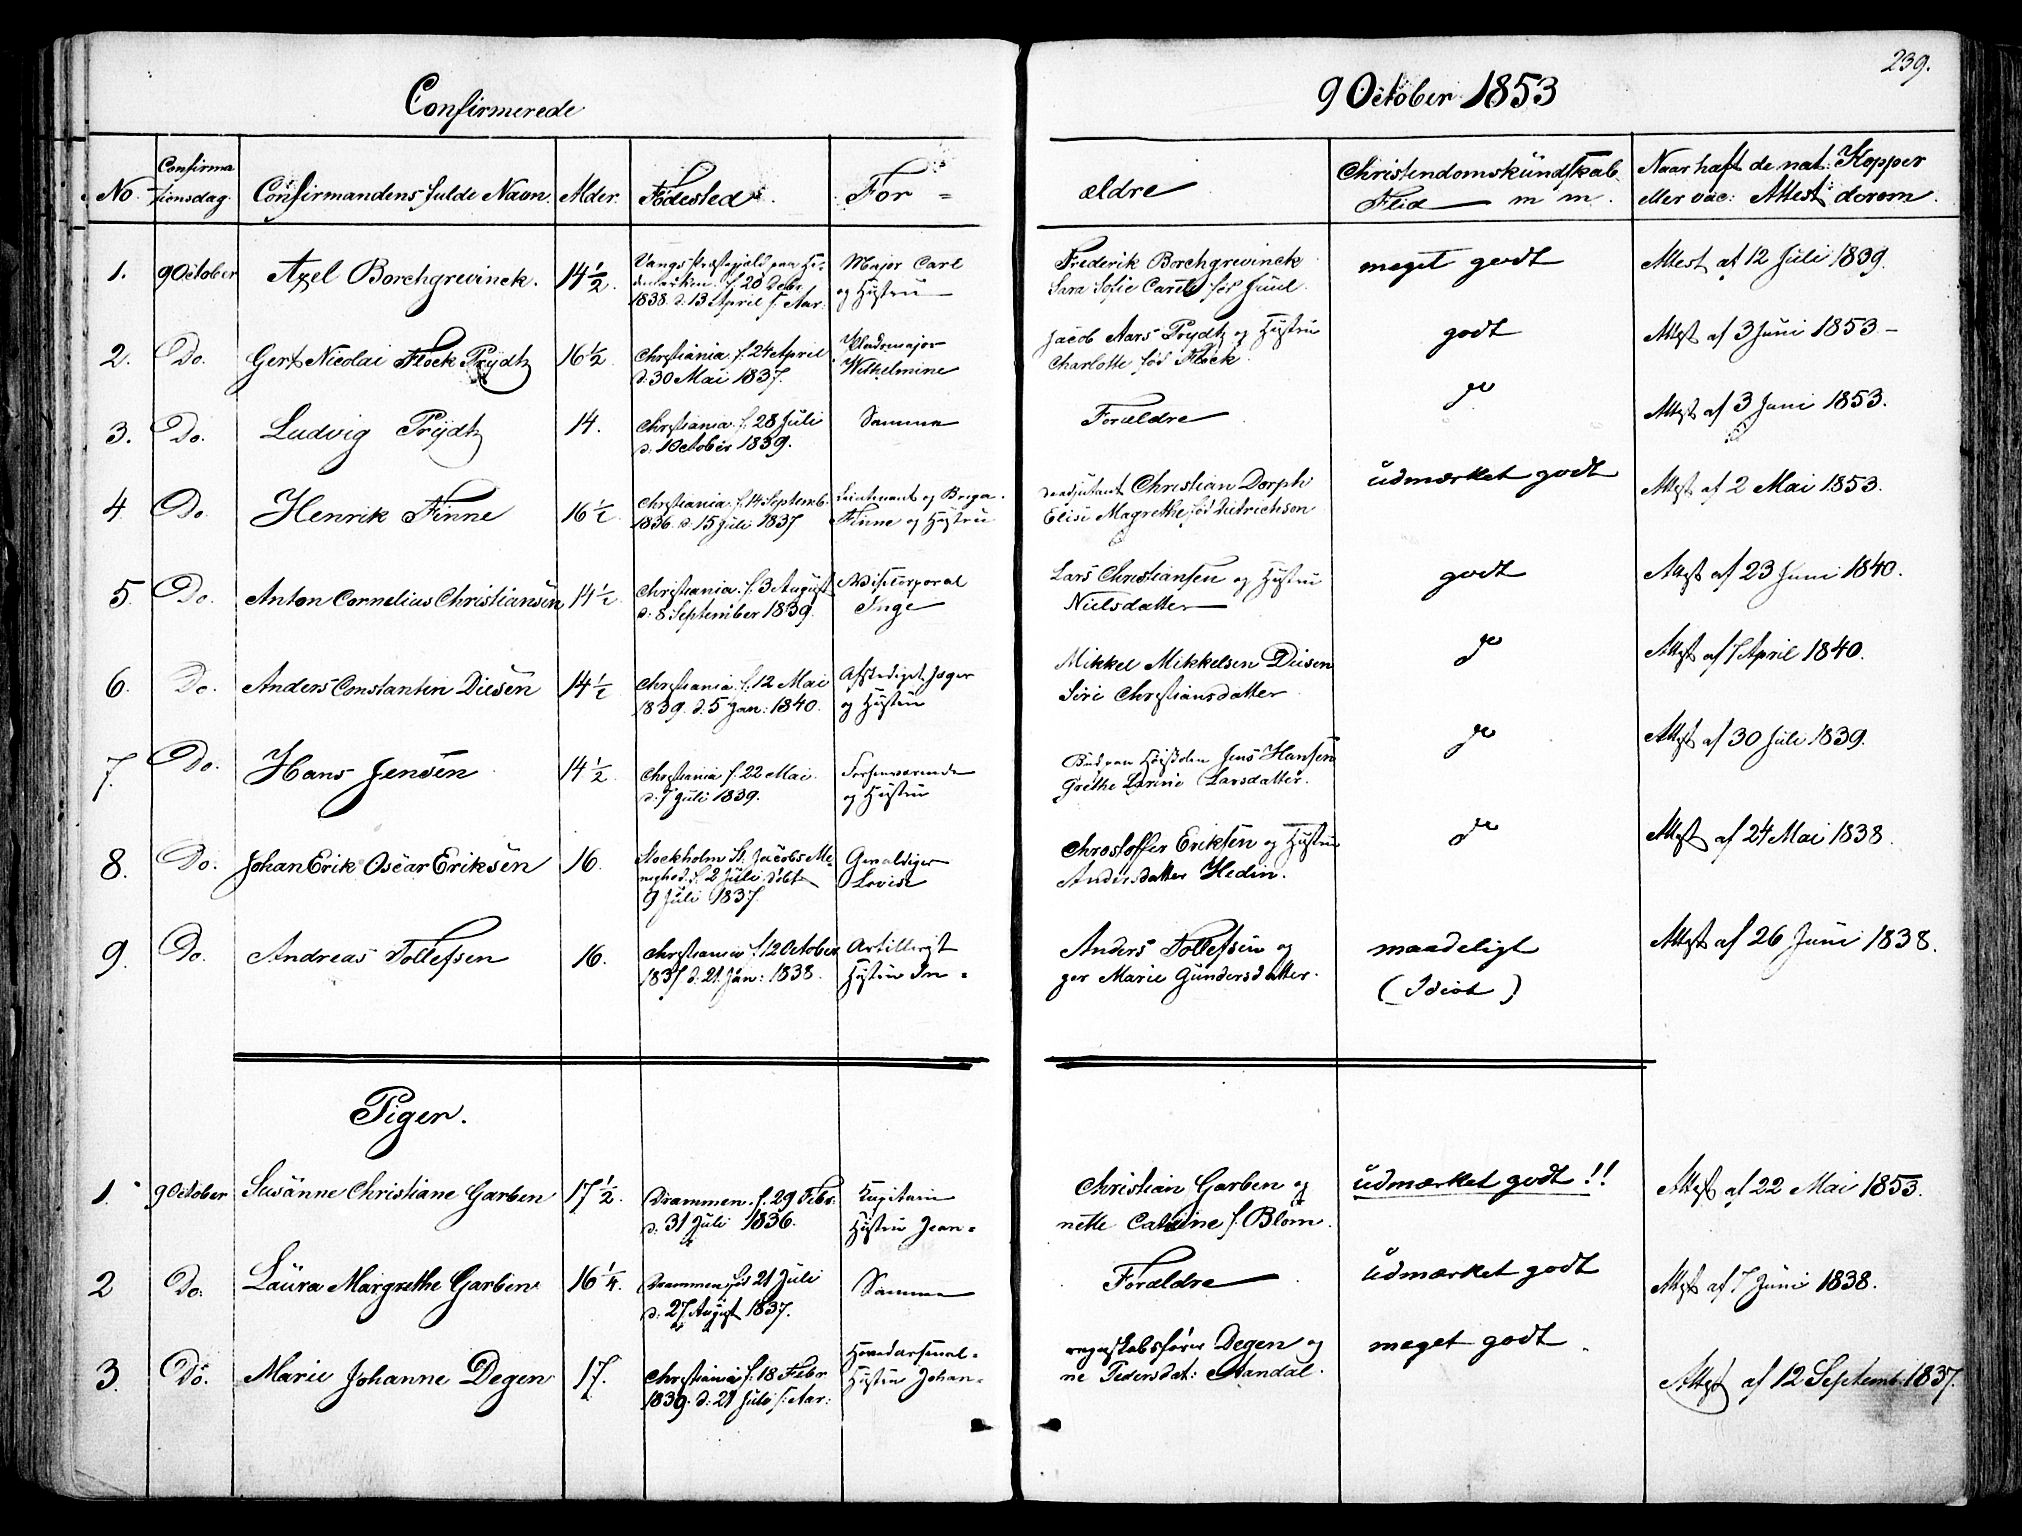 239.
Confirmerede
9 October 1853
No
Confirma
tionsdag.
Confirmandens fulde Navn.
Alder.
Födested.
For =
ældre
Christendomskundskab
Flid — m m.
Naar haft de nat: Kopper
eller vac: Attest derom.
1.
9 October
Axel Borchgrevinck.
14 1/2.
Vangs Præstegjeld paa He-
demarken. f. 20 Debr.
1838. d. 13 April f. Aar:
Major Carl
og Hustru
Frederik Borchgrevinck
Sara Sofie født Juul.
meget godt
Attest af 12 Juli 1839.
2.
Do.
Gert Nicolai Flock Prydtz
16 1/2
Christiania. f. 24 April
d: 30 Mai 1837.
Pladsmajor
Wilhelmine
Jacob Aars Prydtz og Hustru
Charlotte fød Flock.
godt
Attest af 3 Juni 1853 –
3.
Do.
Ludvig Prydtz
14.
Christiania. f. 28 Juli
d: 1 October 1839.
Samme
Forældre
do
Attest af 3 Juni 1853.
4.
Do.
Henrik Finne
16 1/2
Christiania. f. 14 Septemb:
1836. d. 15 Juli 1837
Lieutenant og Briga-
Finne og Hustru
deadjutant Christian Dorph
Elise Magrethe fød Didrichson
udmærket godt
Attest af 2 Mai 1853.
5.
Do.
Anton Cornelius Christiansen
14 1/2
Christiania. f. 3 August
d: 8 September 1839.
Inge
Lars Christiansen og Hustru
Nielsdatter
godt
Attest af 23 Juni 1840.
6.
Do.
Anders Constantin Diesen
14 1/2
Christiania. f. 12 Mai
1839. d: 5 Jan: 1840.
Afskediget Jæger
og Hustru
Mikkel Mikkelsen Diesen
Siri Christiansdatter
do
Attest af 7 April 1840.
7.
Do.
Hans Jensen
14 1/2
Christiania f. 22 Mai.
d: 7 Juli 1839.
Forhenværende
og Hustru
Bud paa Jens Hansen
Grethe Larine Larsdatter.
do
Attest af 30 Juli 1839.
8.
Do.
Johan Erik Oscar Eriksen
16.
Stockholm St: Jacobs Me-
nighed f. 2 Juli. döbt
9 Juli 1837.
Gevaldiger
Lovise
Christoffer Eriksen og Hustru
Andersdatter Hedin.
do
Attest af 24 Mai 1838.
9.
Do.
Andreas Tollefsen
16.
Christiania f. 12 October
1837 d: 21 Jan: 1838.
Artillerist
Hustru In =
Anders Tollefsen og
ger Marie Gundersdatter.
maadeligt
(Idiot)
Attest af 26 Juni 1838.
Piger.
1.
9 October
Susanne Christiane Garben
17 1/2.
Drammen. f. 29 Febr.
d: 31 Juli 1836.
Kapitain
Hustru Jean =
Christian Garben og
nette Catrine f. Blom.
udmærket godt!!
Attest af 22 Mai 1853.
2
Do.
Laura Margrethe Garben
16 1/4.
Drammen, fød 21 Juli
d: 27 August 1837.
Samme
Forældre
udmærket godt
Attest af 7 Juni 1838.
3.
Do.
Marie Johanne Degen
17.
Christiania f. 18 Febr
1839. d: 21 Juli f: Aar:
Hovedarsenal =
Hustru Johan =
regnskabsfører Degen og
ne Pedersdat: Aandal.
meget godt
Attest af 12 Septemb: 1837.